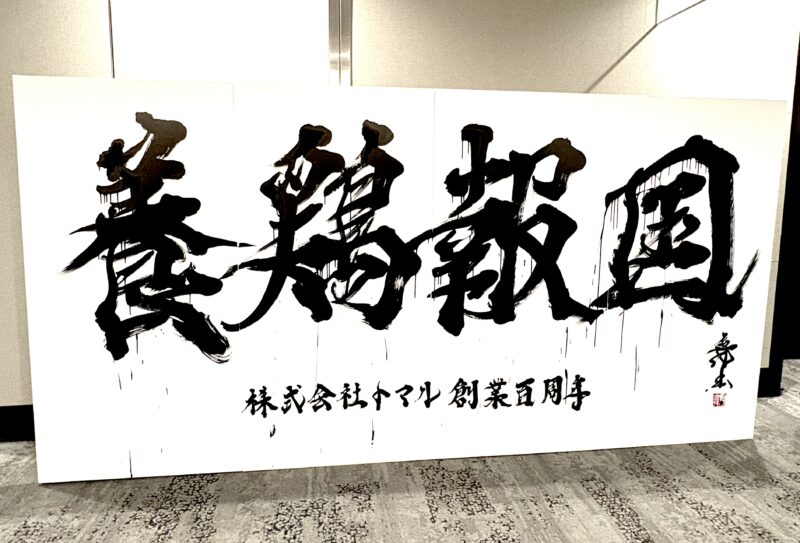 養鶏報国
株式会社トマル創業百周年